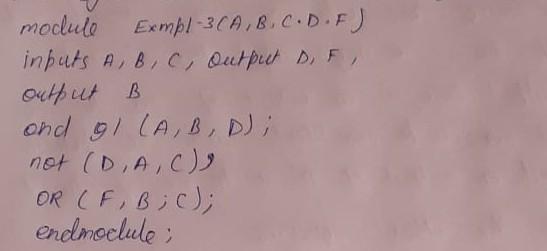 module Exmpl-3(A, B, C.D.F)
inputs A, B, C, Output D, F,
output B
and g1 (A, B, D);
not (D, A, C),
OR (F, B ; C);
endmodule ;